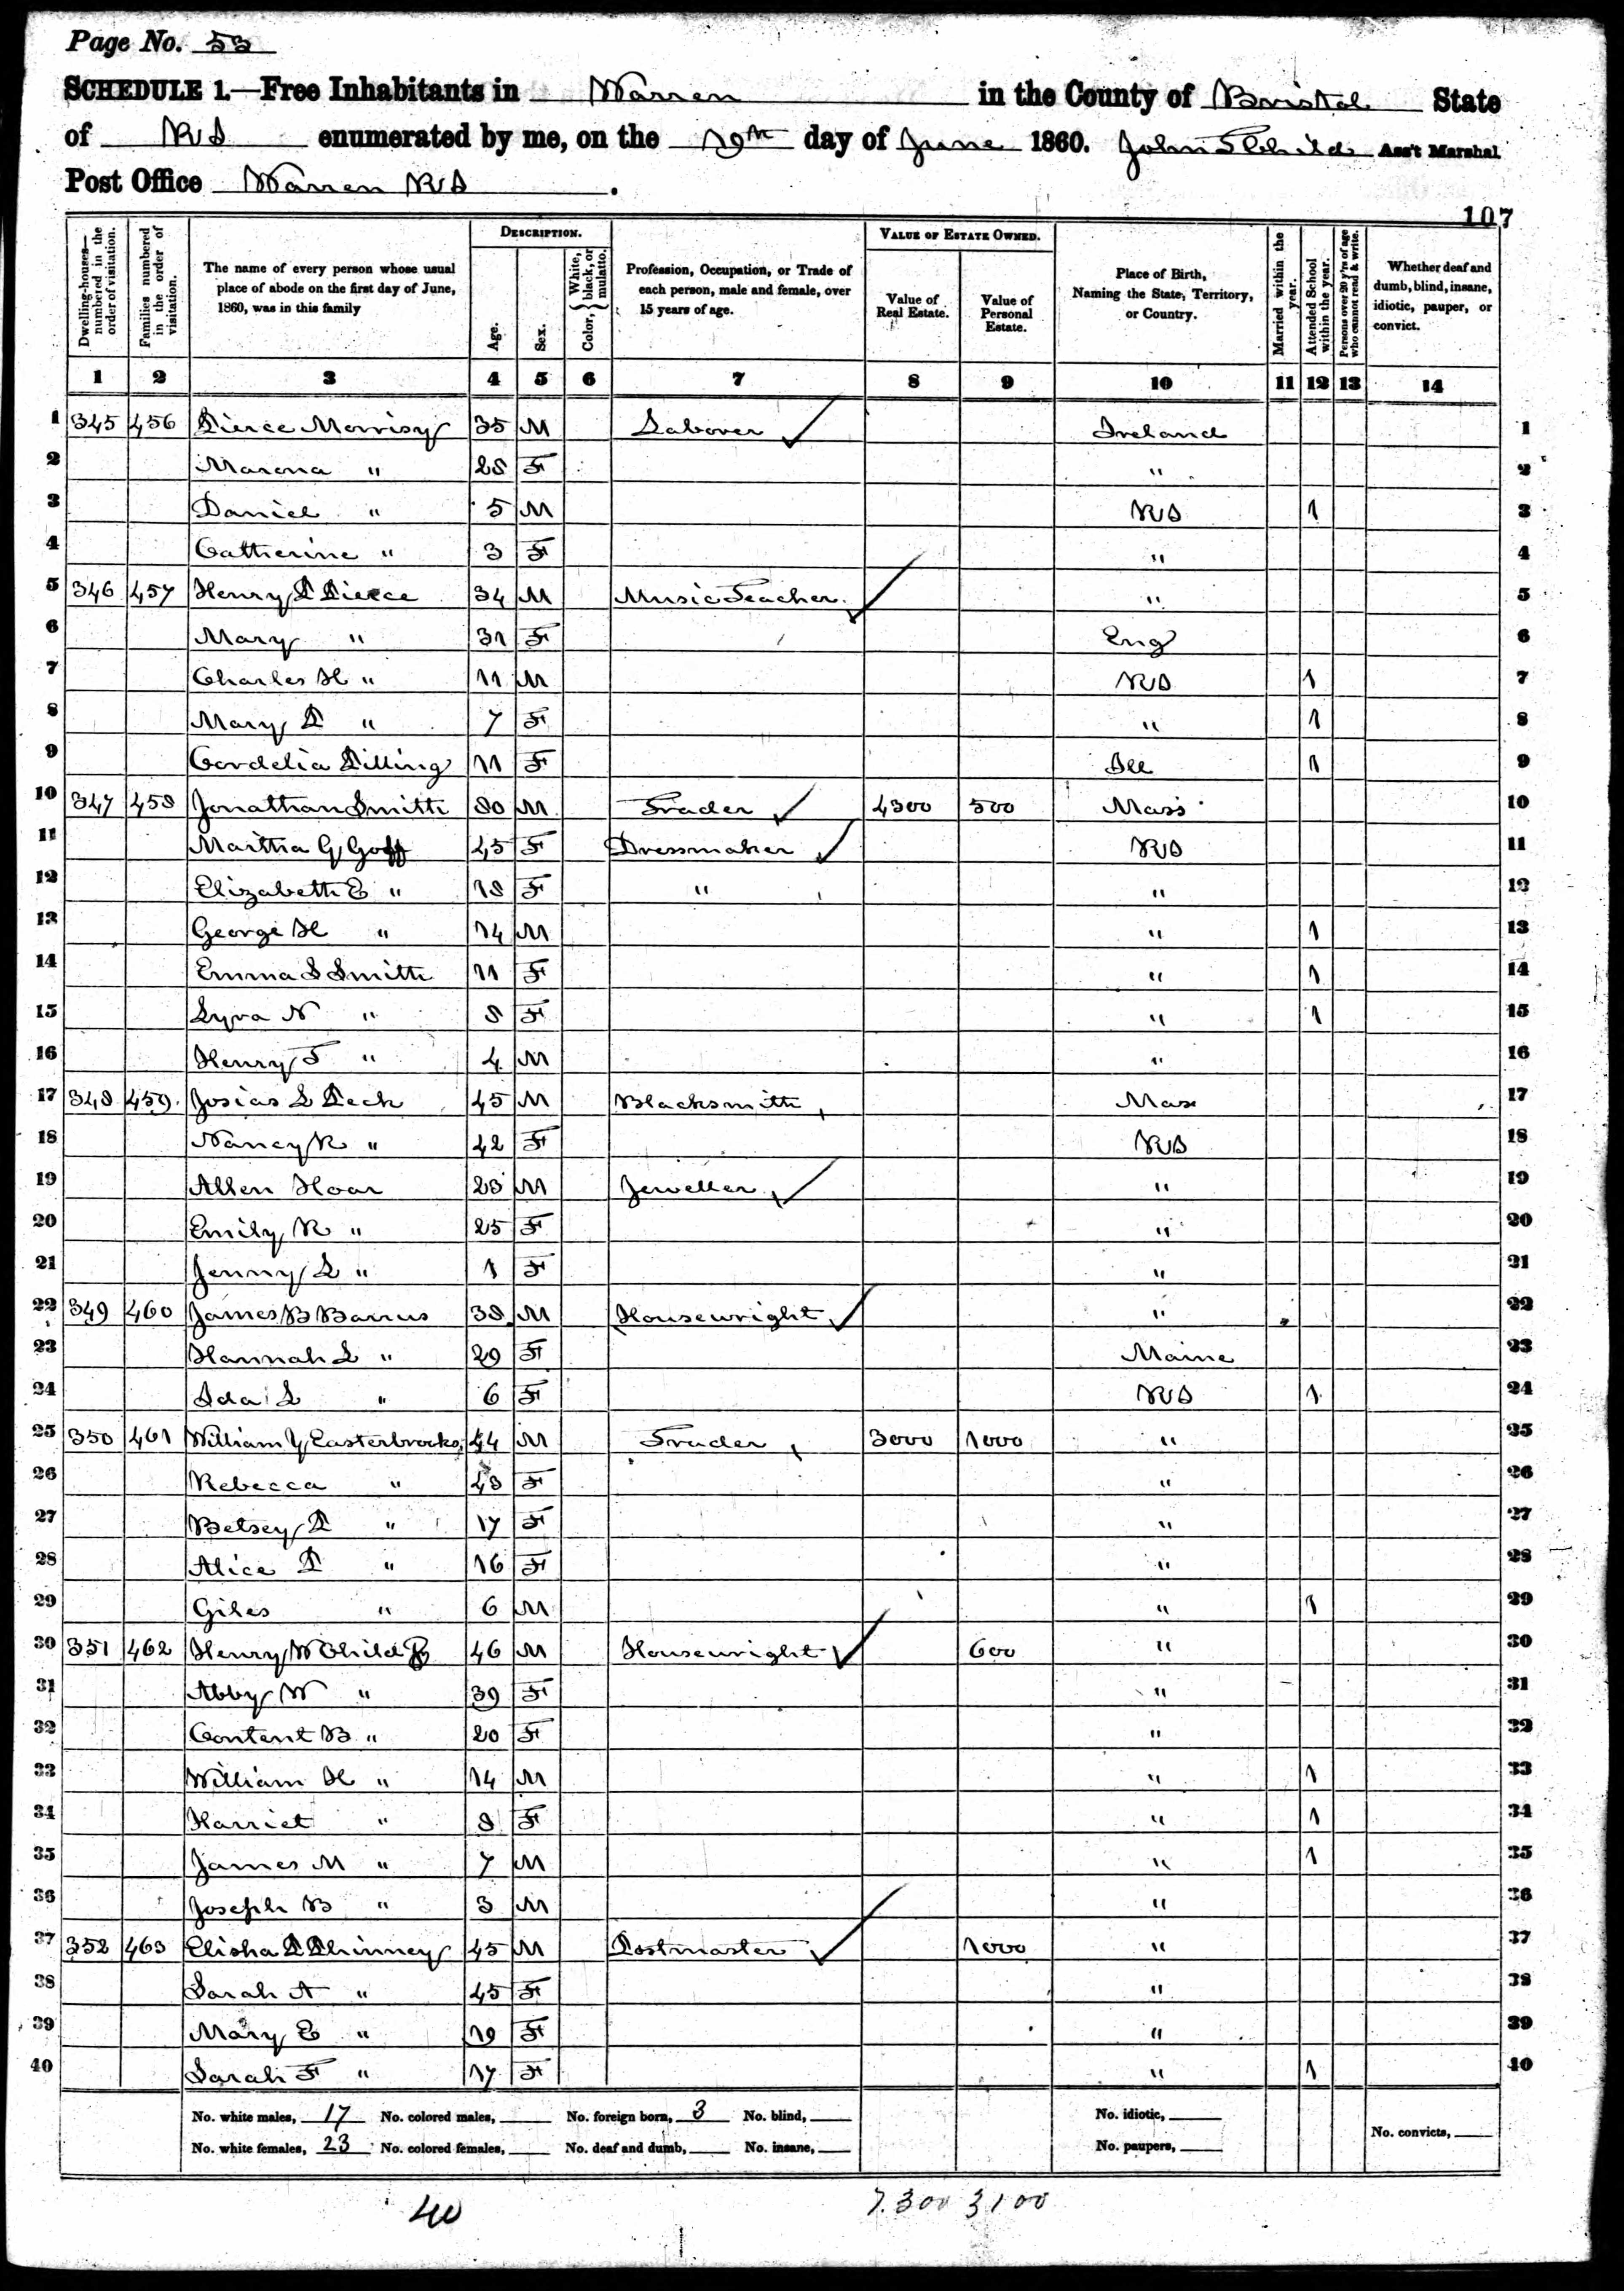 Page No. 53
SCHEDULE 1.—Free Inhabitants in Warren in the County of Bristol State
of RI enumerated by me, on the 19th day of June 1860. John T Child Ass't Marshal
Post Office Warren RI.
107
Dwelling-houses—numbered in the order of visitation.
Families numbered in the order of visitation.
The name of every person whose usual place of abode on the first day of June, 1860, was in this family
DESCRIPTION.
Age.
Sex.
Color, { White, black, or mulatto.
Profession, Occupation, or Trade of each person, male and female, over 15 years of age.
VALUE OF ESTATE OWNED.
Value of Real Estate.
Value of Personal Estate.
Place of Birth, Naming the State, Territory, or Country.
Married within the year.
Attended School within the year.
Persons over 20 y'rs of age who cannot read & write.
Whether deaf and dumb, blind, insane, idiotic, pauper, or convict.
1 2 3 4 5 6 7 8 9 10 11 12 13 14
1 345 456 Pierce Morrisy 35 M Laborer Ireland 1
2 Marona " 28 F " 2
3 Daniel " 5 M RI 1 3
4 Catherine " 3 F " 4
5 346 457 Henry P Pierce 34 M Music Teacher " 5
6 Mary " 31 F Eng 6
7 Charles H " 11 M RI 1 7
8 Mary P " 7 F " 1 8
9 Cordelia Pilling 11 F Ill 1 9
10 347 458 Jonathan Smith 80 M Trader 4300 500 Mass 10
11 Martha G Goff 45 F Dressmaker RI 11
12 Elizabeth E " 18 F " " 12
13 George H " 14 M " 1 13
14 Emma S Smith 11 F " 1 14
15 Lyra N " 8 F " 1 15
16 Henry T " 4 M " 16
17 348 459 Josias L Peck 45 M Blacksmith Mass 17
18 Nancy R " 42 F RI 18
19 Allen Hoar 28 M Jeweller " 19
20 Emily R " 25 F " 20
21 Jenny L " 1 F " 21
22 349 460 James B Barrus 38 M Housewright " 22
23 Hannah L " 29 F Maine 23
24 Ida L " 6 F RI 1 24
25 350 461 William Y Easterbrooks 44 M Trader 3000 1000 " 25
26 Rebecca " 43 F " 26
27 Betsey P " 17 F " 27
28 Alice P " 16 F " 28
29 Giles " 6 M " 1 29
30 351 462 Henry W Child Jr 46 M Housewright 600 " 30
31 Abby W " 39 F " 31
32 Content B " 20 F " 32
33 William H " 14 M " 1 33
34 Harriet " 8 F " 1 34
35 James M " 7 M " 1 35
36 Joseph B " 3 M " 36
37 352 463 Elisha P Phinney 45 M Postmaster 1000 " 37
38 Sarah A " 45 F " 38
39 Mary E " 19 F " 39
40 Sarah F " 17 F " 1 40
No. white males, 17 No. colored males, No. foreign born, 3 No. blind, No. idiotic,
No. white females, 23 No. colored females, No. deaf and dumb, No. insane, No. paupers, No. convicts,
40 7.300 3100